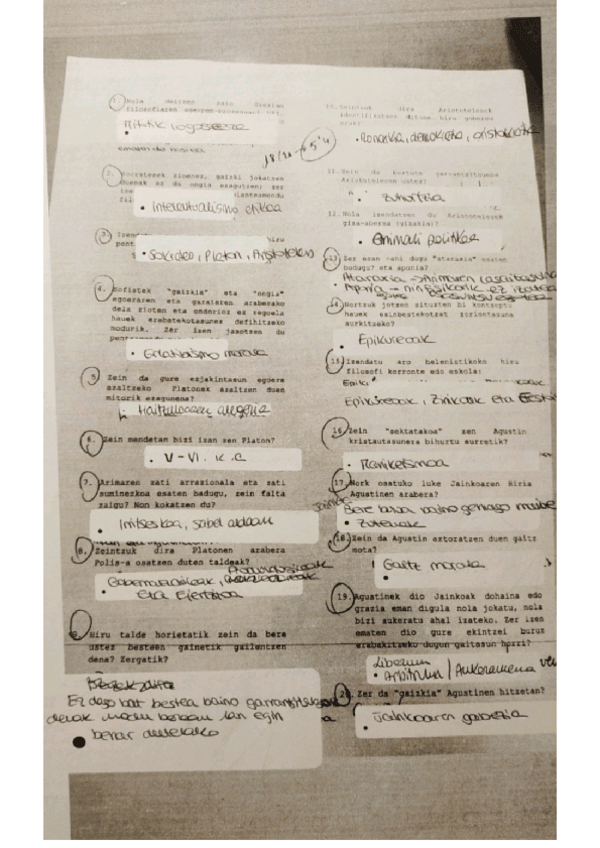 1. Nola deitzen zaio Grezian
filosofiaren
Mitotik logosera
18/20
2. Sokratesek zioenez, gaizki jokatzen
duenak ez du ongia ezagutzen; zer
Intelektualismo etikoa
3.
hiru
Sokrates, Platon, Aristoteles
4. Sofistek "gaizkia" eta "ongia"
egoeraren eta garaiaren araberako
dela zioten eta ondorioz ez zegoela
hauek erabatekotasunez definitzeko
modurik. Zer izen jasotzen du
Erlatibismo morala
5. Zein da gure ezjakintasun egoera
azaltzeko Platonek azaltzen duen
mitorik ezagunena?
Haitzuloaren alegoria
6. Zein mendetan bizi izan zen Platon?
V-VI. K.a
7. Arimaren zati arrazionala eta zati
suminezkoa esaten badugu, zein falta
zaigu? Non kokatzen du?
Irritsezkoa, sabel aldean
8. Zeintzuk dira Platonen arabera
Polis-a osatzen duten taldeak?
Gobernatzaileak,
Eta Ejertzitoa
9. Hiru talde horietatik zein da bere
ustez besteen gainetik gailentzen
dena? Zergatik?
Ez dago bat bestea baino garrantzitsuagoa
denak modu berean lan egin
behar dutelako
10. Zeintzuk dira Aristotelesek
identifikatzen dituen hiru gobernu
Monarkia, demokrazia, aristokrazia
11. Zein da
Aristotelesen ustez?
Zuhurtzia
12. Nola izendatzen du Aristotelesek
giza-aberea (gizakia)?
Animali politikoa
13. Zer esan nahi dugu "ataraxia" esaten
badugu? eta aponia?
Ataraxia → Arimaren lasaitasuna
Aponia →
14. Nortzuk jotzen zituzten bi kontzeptu
hauek ezinbestekotzat zoriontasuna
aurkitzeko?
Epikureoak
15. Izendatu aro helenistikoko hiru
filosofi korronte edo eskola:
Epikureoak, Zinikoak eta
16. Zein "sektatakoa" zen Agustin
kristautasunera bihurtu aurretik?
Manikeismoa
17. Nork osatuko luke Jainkoaren Hiria
Agustinen arabera?
Bere burua baino gehiago maite
Zutenak
18. Zein da Agustin aztoratzen duen gaitz
mota?
Gaitz morala
19. Agustinek dio Jainkoak dohaina edo
grazia eman digula nola jokatu, nola
bizi aukeratu ahal izateko. Zer izen
ematen dio gure ekintzei buruz
erabakitzeko dugun gaitasun horri?
Liberum
Arbitrium / Aukeramena
20. Zer da "gaizkia" Agustinen hitzetan?
Jainkoaren gabezia